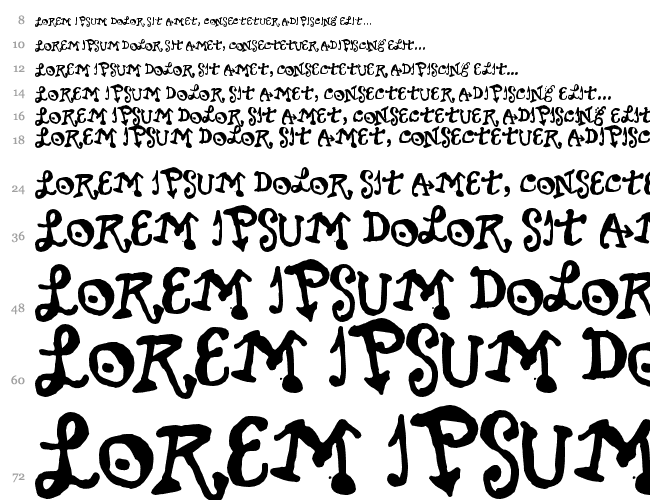 8 LOREM IPSUM DOLOR SIT AMET, CONSECTETUER ADIPISCING ELIT...
10 LOREM IPSUM DOLOR SIT AMET, CONSECTETUER ADIPISCING ELIT...
12 LOREM IPSUM DOLOR SIT AMET, CONSECTETUER ADIPISCING ELIT...
14 LOREM IPSUM DOLOR SIT AMET, CONSECTETUER ADIPISCING ELIT...
16 LOREM IPSUM DOLOR SIT AMET, CONSECTETUER ADIPISCING ELIT
18 LOREM IPSUM DOLOR SIT AMET, CONSECTETUER ADIPISC
24 LOREM IPSUM DOLOR SIT AMET, CONSECTE
36 LOREM IPSUM DOLOR SIT AM
48 LOREM IPSUM DOLOR
60 LOREM IPSUM DO
72 LOREM IPSUM